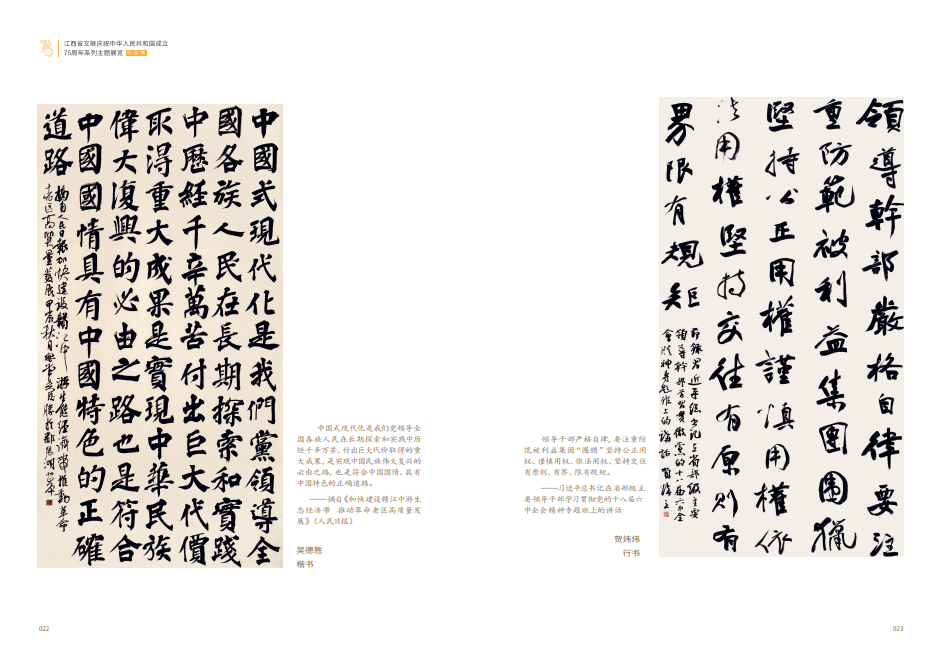 江西省文联庆祝中华人民共和国成立
75周年系列主题展览
中國式現代化是我們黨領導全
國各族人民在長期探索和實踐
中歷經千辛萬苦付出巨大代價
取得重大成果是實現中華民族
偉大復興的必由之路也是符合
中國國情具有中國特色的正確
道路
摘自人民日報加快建設贛江中游生態經濟帶推動革命
老區高質量發展甲辰秋月
中国式现代化是我们党领导全
国各族人民在长期探索和实践中历
经千辛万苦、付出巨大代价取得的重
大成果，是实现中国民族伟大复兴的
必由之路，也是符合中国国情、具有
中国特色的正确道路。
——摘自《加快建设赣江中游生
态经济带 推动革命老区高质量发
展》（人民日报）
吴德胜
楷书
022
領導幹部嚴格自律要注
重防範被利益集團圍獵
堅持公正用權謹慎用權依
法用權堅持交往有原則有
界限有規矩
節錄習近平總書記在省部級主要
領導幹部學習貫徹黨的十八屆六中全
會精神專題班上的講話
领导干部严格自律，要注重防
范被利益集团“围猎”坚持公正用
权、谨慎用权、依法用权，坚持交往
有原则、有界、限有规矩。
——习近平总书记在省部级主
要领导干部学习贯彻党的十八届六
中全会精神专题班上的讲话
贺炜炜
行书
023